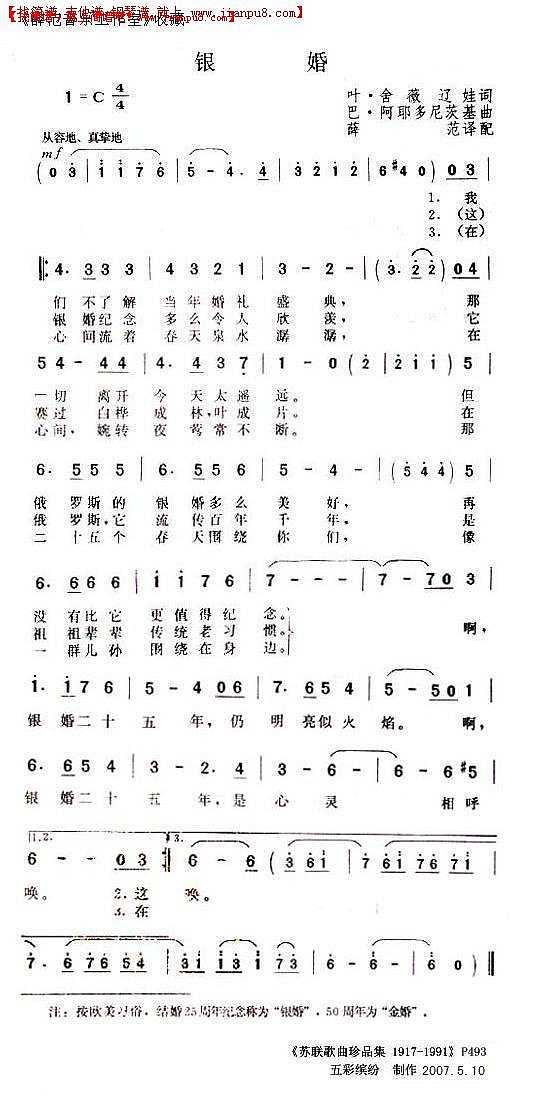 【找简谱、吉他谱、钢琴谱 就上 www.jianpu8.com】
《薛范音乐工作室》收藏
银 婚
1=C 4/4
叶·舍薇辽娃词
巴·阿耶多尼茨基曲
薛 范译配
从容地、真挚地
mf
(0 3 | 1 1 7 6 | 5 - 4. 4 | 3 2 1 2 | 6 #4 0) 0 3
1. 我
2.(这)
3.(在)
4. 3 3 3 | 4 3 2 1 | 3 - 2 - | (3. 2 2) 0 4
们 不了解 当年婚礼 盛 典, 那
银 婚纪念 多么令人 欣 羡, 它
心 间流着 春天泉水 潺 潺, 在
5 4 - 4 4 | 4. 4 3 7 | 1 - 0 (2 | 2 1 1) 5
一切 离开 今 天太遥 远。 但
赛过 白桦 成 林,叶成 片。 在
心间, 婉转 夜 莺常不 断。 那
6. 5 5 5 | 7 7 5 6 | 5 - 4 - | (5 4 4) 5
俄 罗斯的 银婚多么 美 好, 再
俄 罗斯,它 流传百年 千 年。 是
二 十五个 春天围绕 你 们, 像
6. 6 6 6 | 1 1 7 6 | 7 - - - | 7 - 7 0 3
没 有比它 更值得纪 念。
祖 祖辈辈 传统老习 惯。 啊,
一 群儿孙 围绕在身 边。
1. 1 7 6 | 5 - 4 0 6 | 7. 6 5 4 | 5 - 5 0 1
银 婚二十 五 年,仍 明 亮似火 焰。 啊,
6. 6 5 4 | 3 - 2. 4 | 3 - 6 - | 6 - 6 #5
银 婚二十 五 年,是 心 灵 相呼
1.2. 3.
6 - - 0 3 :| 6 - - (3 6 1 | 7 6 7 6 7 1 |
唤。 2.这 唤。
3.在
7. 6 7 6 5 4 | 3 3 1 1 3 1 7 | 6 - - - | 6 - 6 0)
注:按欧美习俗,结婚25周年纪念称为“银婚”,50周年为“金婚”。
《苏联歌曲珍品集 1917-1991》P493
五彩缤纷 制作 2007.5.10